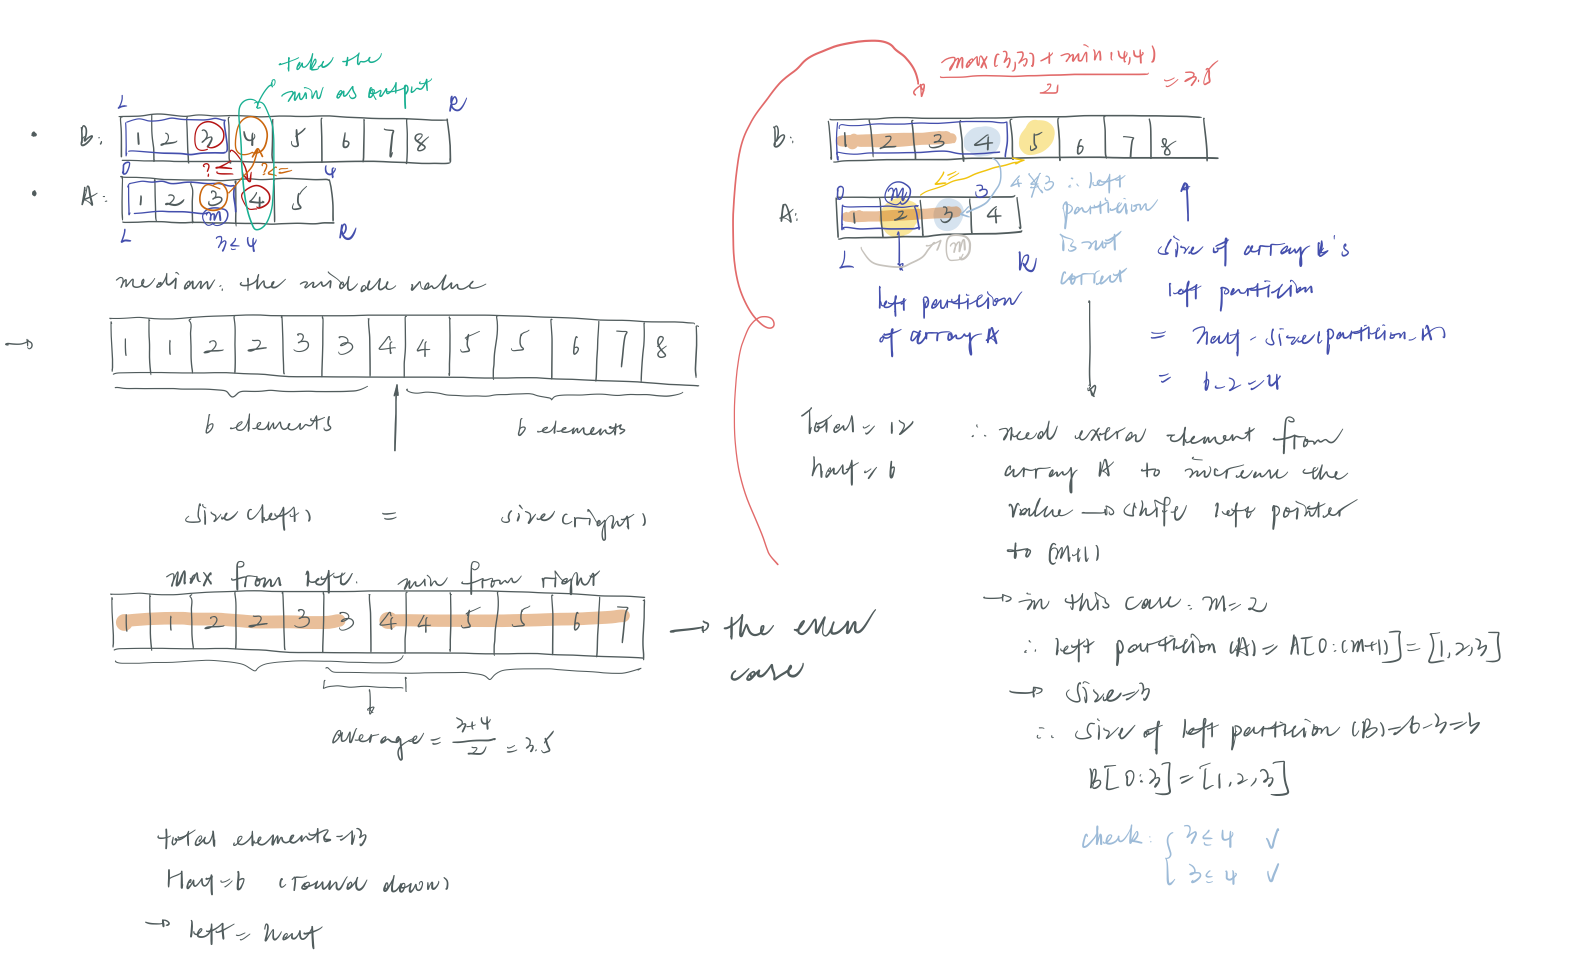 take the
min as output
L
R
B:
1 2 3 4 5 6 7 8
0
? ≤
? <=
4
A:
1 2 3 4 5
m
L
3 ≤ 4
R
median: the middle value
→
1 1 2 2 3 3 4 4 5 5 6 7 8
6 elements
6 elements
size(left) = size(right)
max from left. min from right
1 1 2 2 3 3 4 4 5 5 6 7
→ the even
case
average = 3+4 / 2 = 3.5
total elements = 13
Half = 6 (round down)
→ left = half
max(3,3) + min(4,4) / 2 = 3.5
B:
1 2 3 4 5 6 7 8
<=
0
m
3
A:
1 2 3 4
m
L
R
4 ≰ 3 ∴ left
partition
is not
correct
left partition
of array A
size of array B's
left partition
= half - size(partition_A)
= 6-2=4
Total = 12
half = 6
∴ need extra element from
array A to increase the
value → shift left pointer
to (m+1)
→ in this case: m=2
∴ left partition (A) = A[0:(m+1)] = [1,2,3]
→ size=3
∴ size of left partition (B)=6-3=3
B[0:3]=[1,2,3]
check: { 3 ≤ 4 ✓
3 ≤ 4 ✓